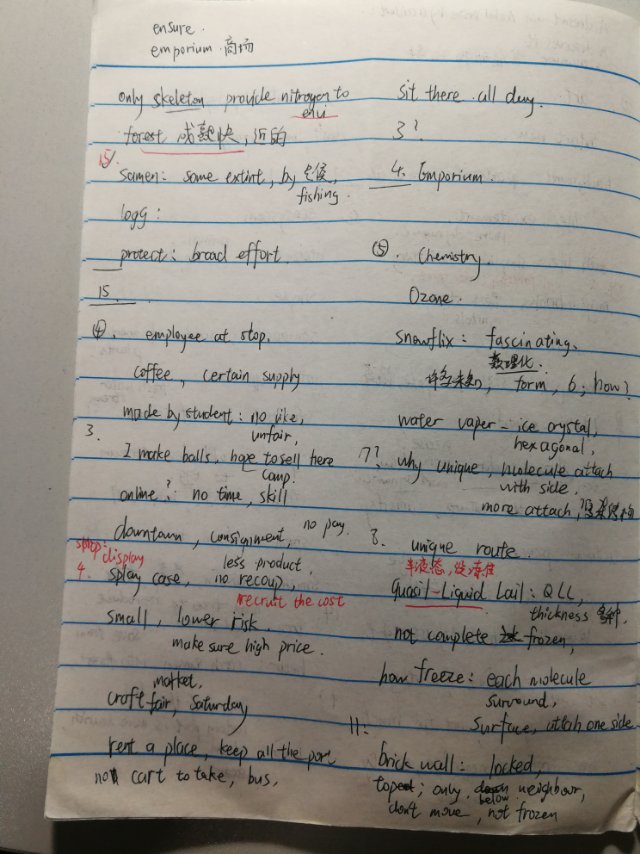 ensure.
emporium 商场
only skeleton provide nitrogen to
envi
forest 成熟快, 近的
15.
samen: some extint, by 气候,
fishing.
logg:
protect: broad effort
15.
④. employee at stop.
coffee, certain supply
made by student: no like,
unfair,
3.
I make balls, hope to sell here
camp.
online? no time, skill
downtown, consignment, no pay.
display
less product.
4. splay case, no recoup,
recruit the cost
small, lower risk
make sure high price.
market.
croft fair, Saturday
rent a place, keep all the port
no cart to take, bus,
sit there all day.
3?
4. Emporium.
⑤. Chemistry
Ozone.
snowflix: fascinating,
数理化.
许多未知, form, 6, how?
water vaper - ice crystal,
hexagonal,
7? why unique, molecule attach
with side.
more attach,
8. unique route.
半液态,
quasil-liquid Lail: QLL,
thickness
not complete frozen,
how freeze: each molecule
surround,
11: surface, attah one side
brick wall: locked,
top; only below neighbour,
don't move, not frozen